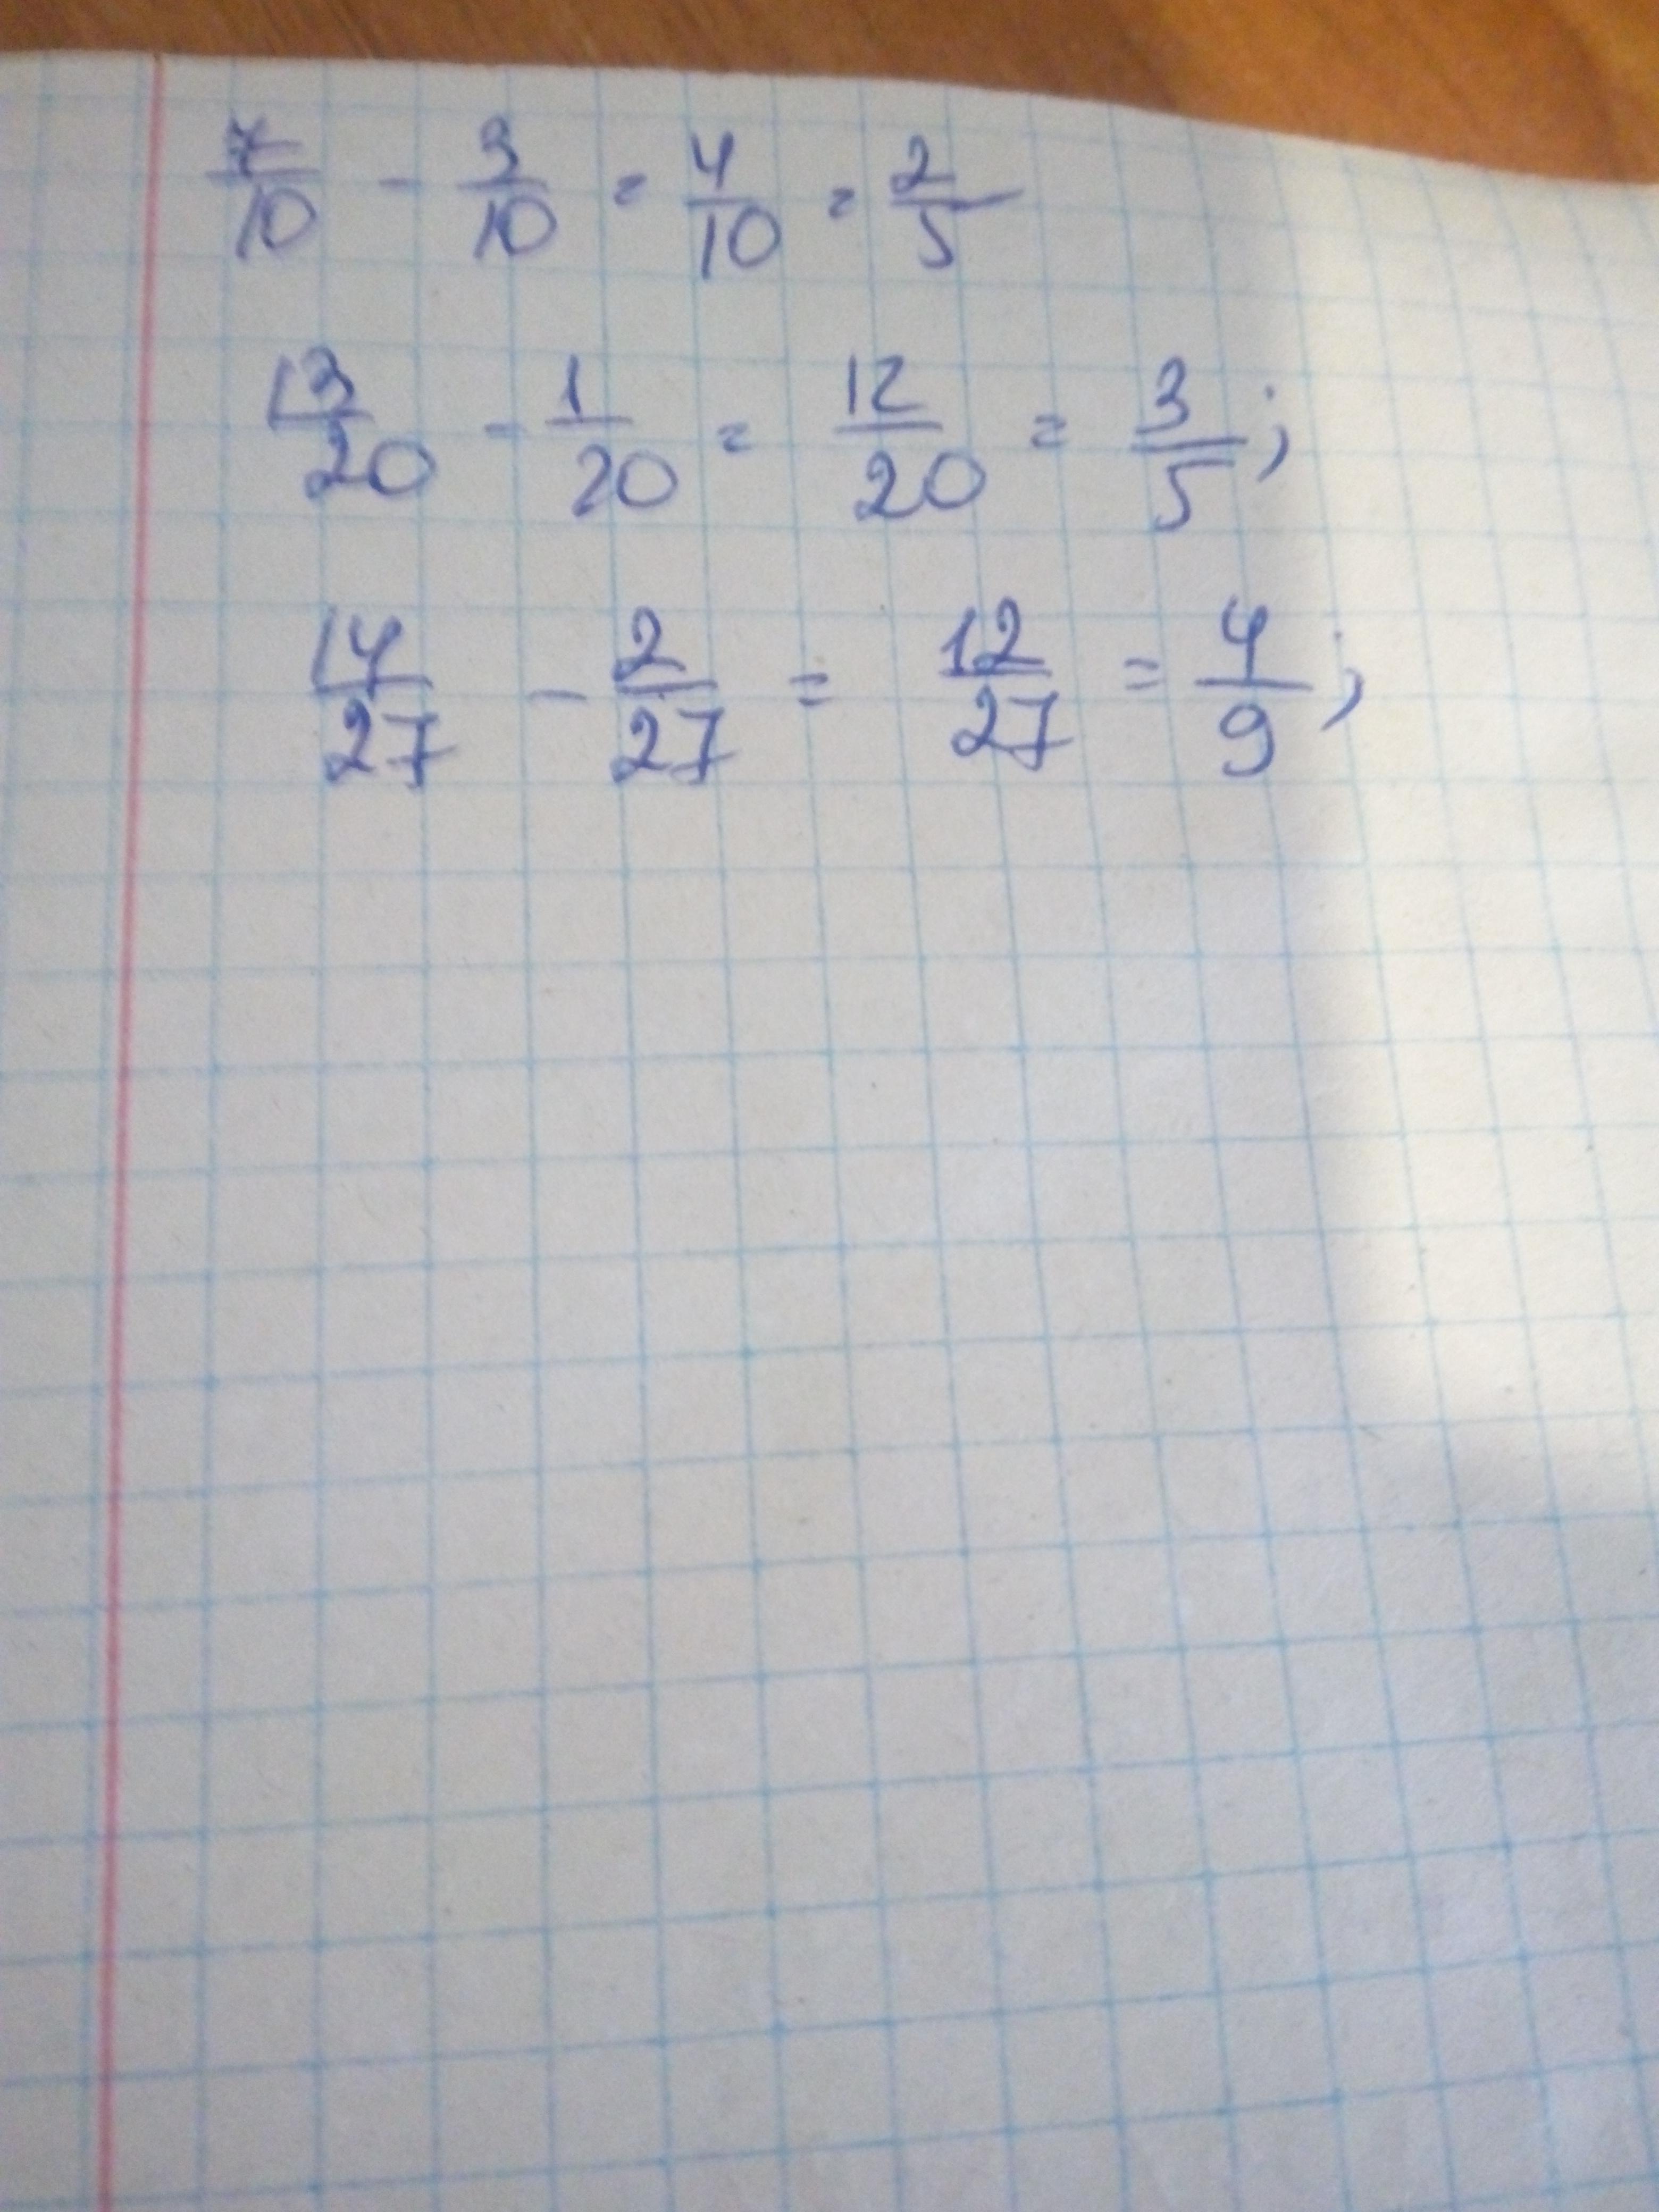 7/10 - 3/10 = 4/10 = 2/5
13/20 - 1/20 = 12/20 = 3/5;
14/27 - 2/27 = 12/27 = 4/9;